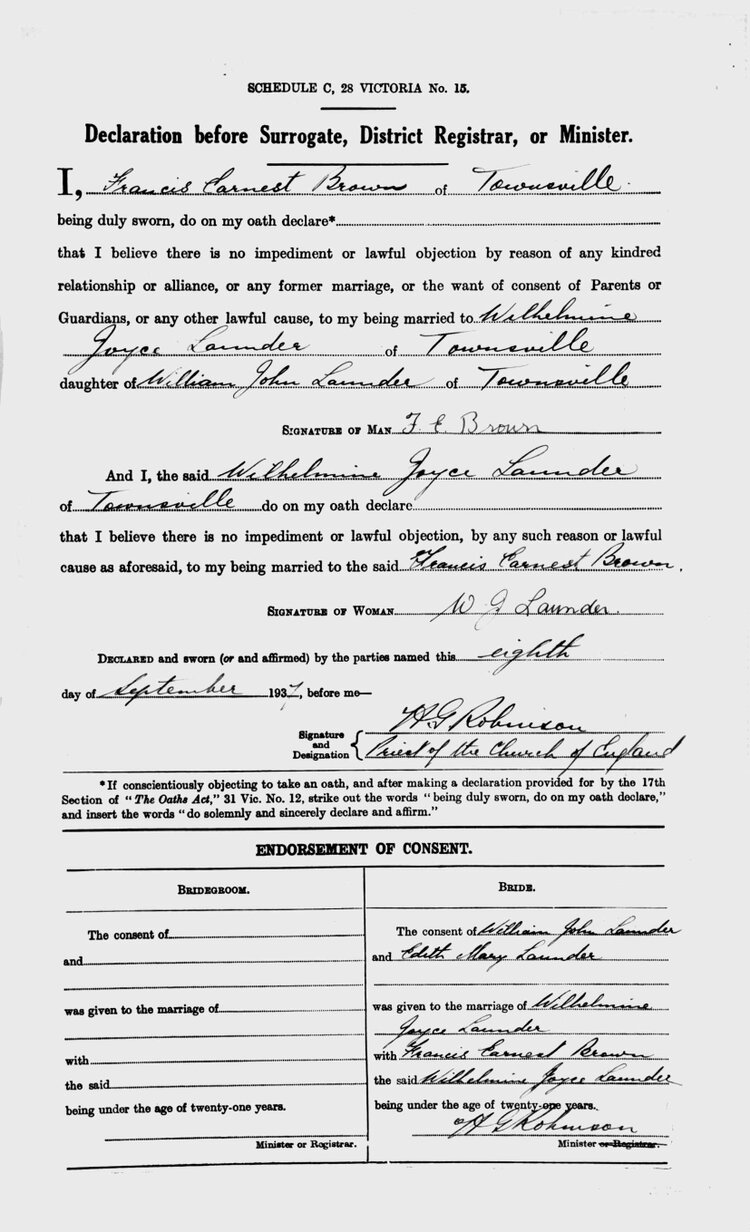 SCHEDULE C, 28 VICTORIA No. 15.
Declaration before Surrogate, District Registrar, or Minister.
I, Francis Earnest Brown of Townsville.
being duly sworn, do on my oath declare*
that I believe there is no impediment or lawful objection by reason of any kindred
relationship or alliance, or any former marriage, or the want of consent of Parents or
Guardians, or any other lawful cause, to my being married to Wilhelmine
Joyce Launder of Townsville
daughter of William John Launder of Townsville
SIGNATURE OF MAN F. E. Brown
And I, the said Wilhelmine Joyce Launder
of Townsville do on my oath declare
that I believe there is no impediment or lawful objection, by any such reason or lawful
cause as aforesaid, to my being married to the said Francis Earnest Brown.
SIGNATURE OF WOMAN W J Launder.
DECLARED and sworn (or and affirmed) by the parties named this eighth
day of September 1937, before me—
Signature and Designation { H G Robinson
Priest of the Church of England
*If conscientiously objecting to take an oath, and after making a declaration provided for by the 17th
Section of "The Oaths Act," 31 Vic. No. 12, strike out the words "being duly sworn, do on my oath declare,"
and insert the words "do solemnly and sincerely declare and affirm."
ENDORSEMENT OF CONSENT.
BRIDEGROOM.
The consent of
and
was given to the marriage of
with
the said
being under the age of twenty-one years.
Minister or Registrar.
BRIDE.
The consent of William John Launder
and Edith Mary Launder
was given to the marriage of Wilhelmine
Joyce Launder
with Francis Earnest Brown
the said Wilhelmine Joyce Launder
being under the age of twenty-one years.
H G Robinson
Minister or Registrar.